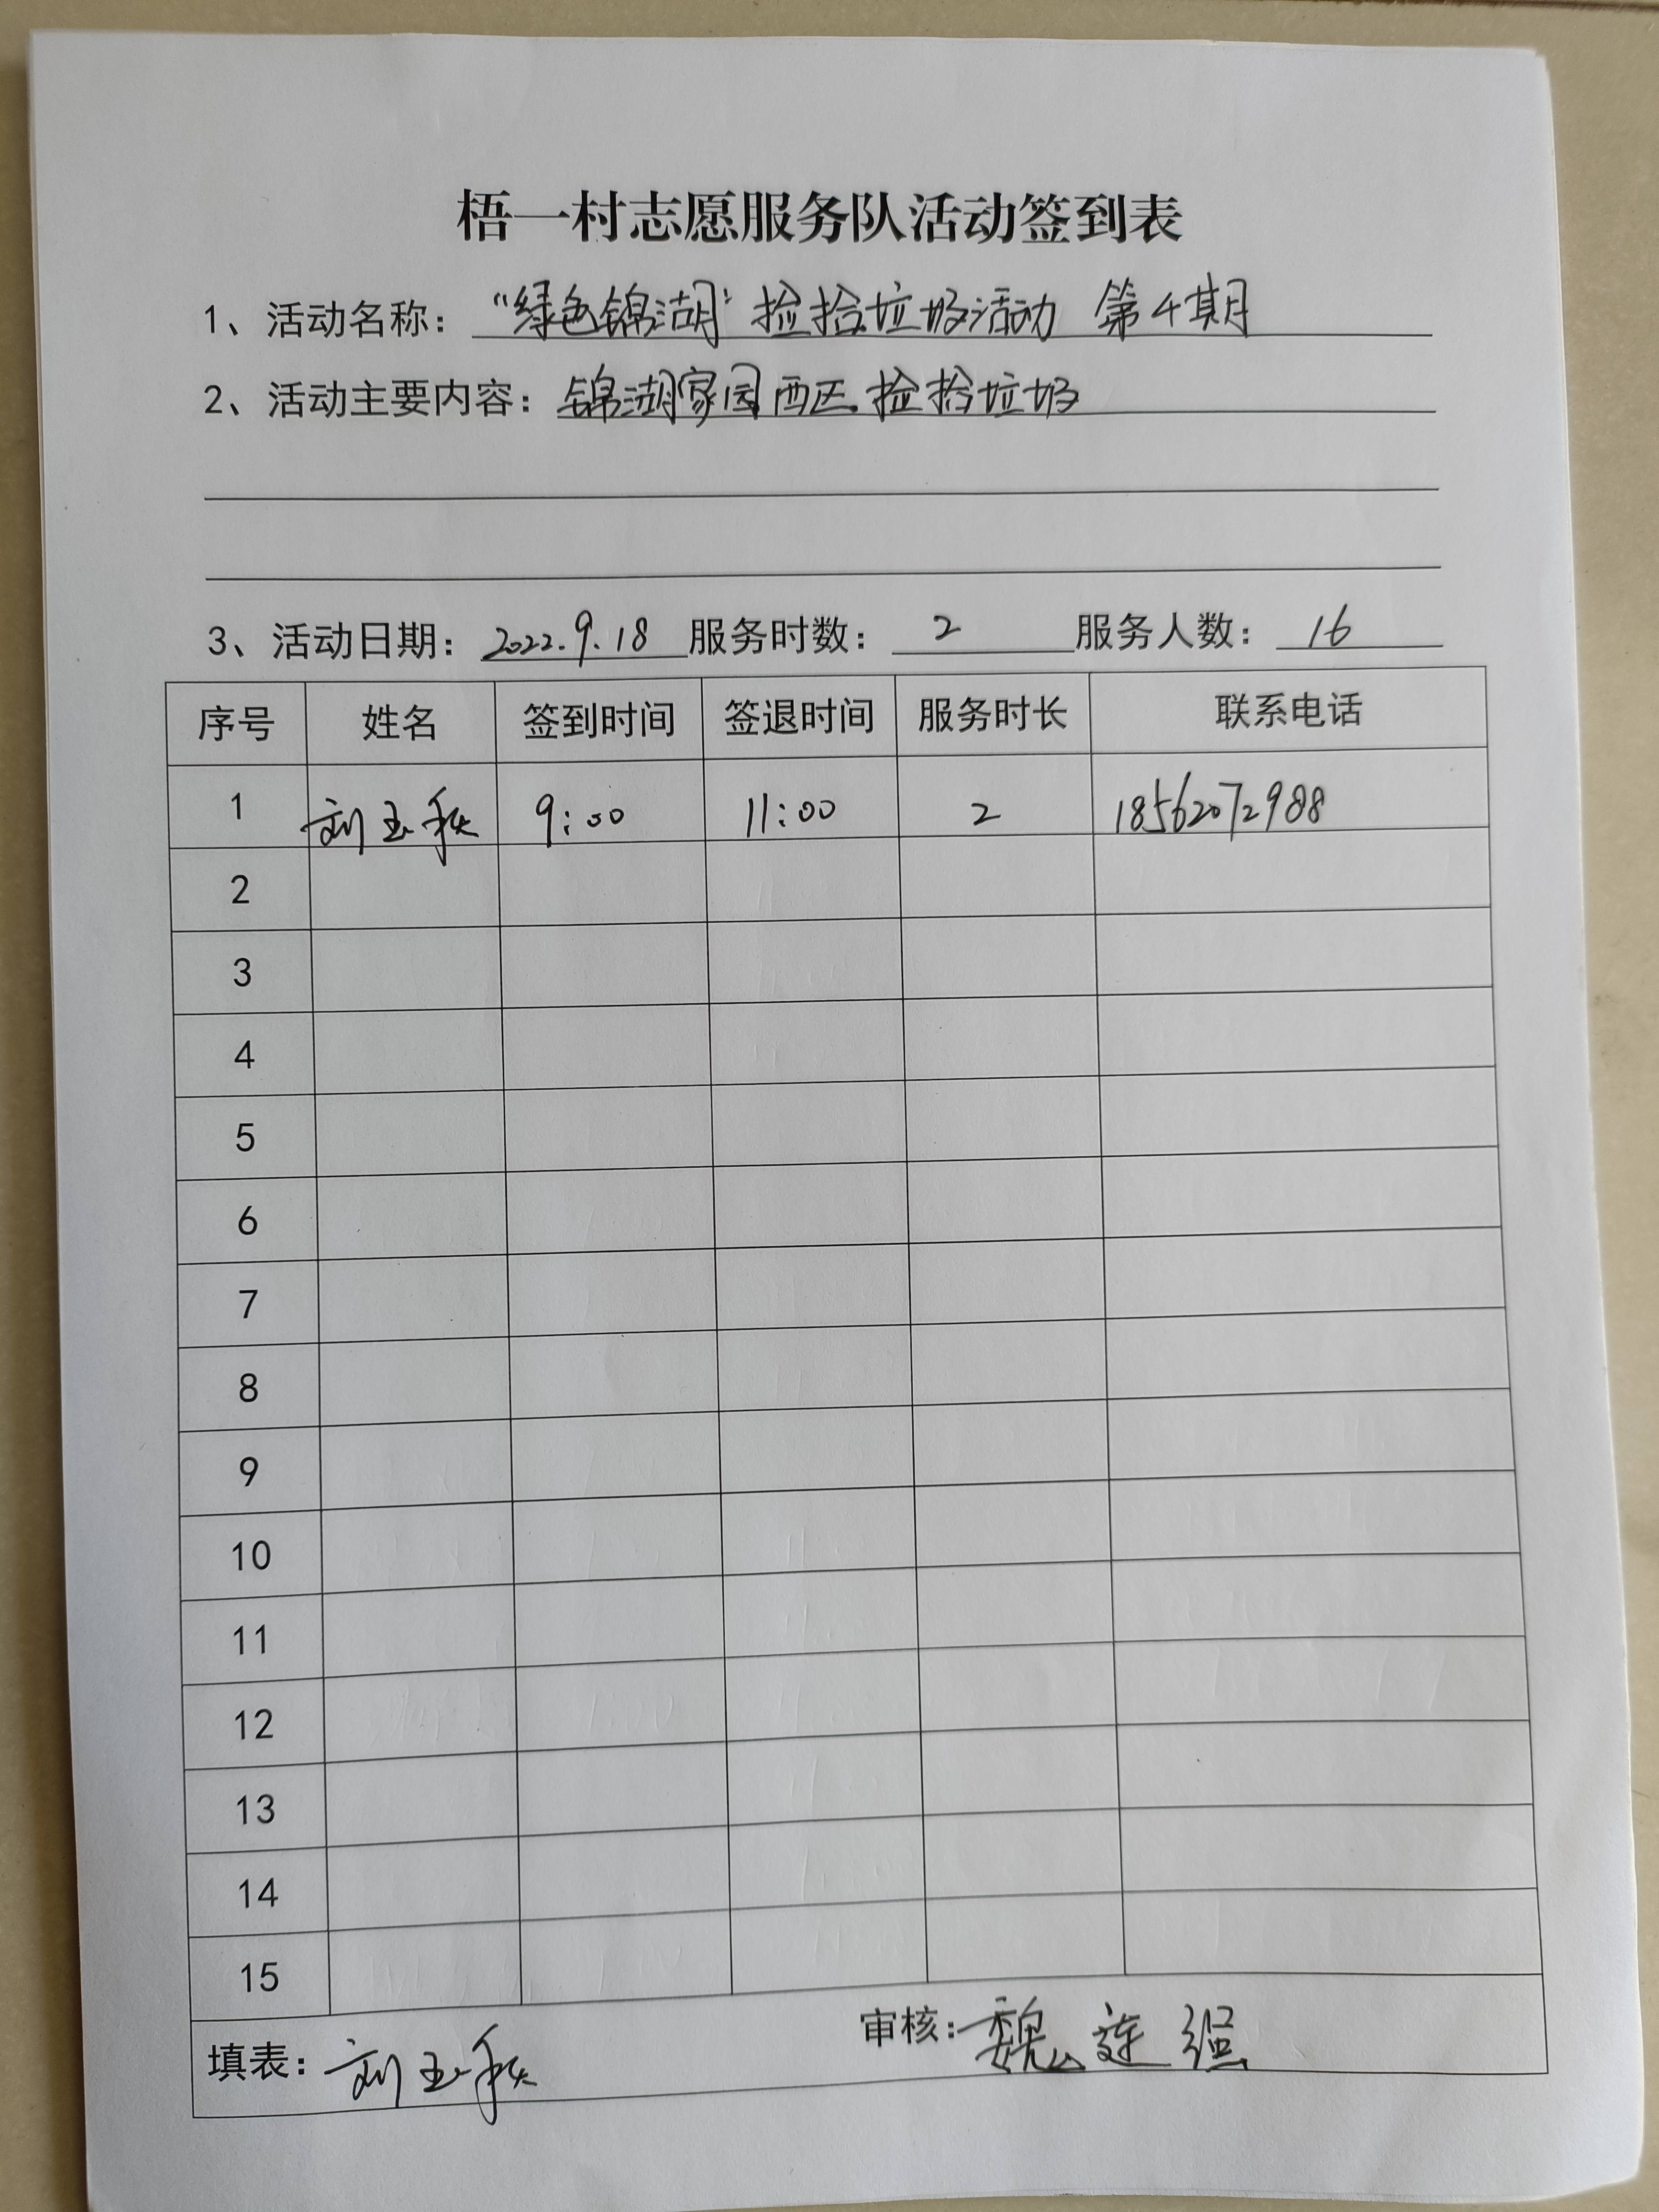 梧一村志愿服务队活动签到表
1、活动名称：“绿色锦湖”捡拾垃圾活动 第4期
2、活动主要内容：锦湖家园西区捡拾垃圾
3、活动日期：2022.9.18 服务时数：2 服务人数：16
序号 姓名 签到时间 签退时间 服务时长 联系电话
1 刘玉秋 9:00 11:00 2 18562072988
2
3
4
5
6
7
8
9
10
11
12
13
14
15
填表：刘玉秋 审核：魏莲